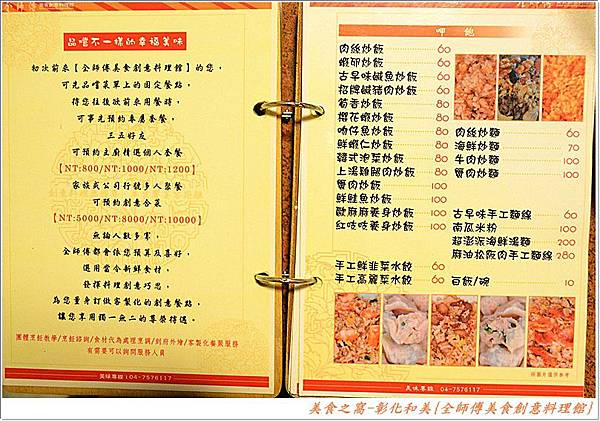 品嚐不一樣的幸福美味
初次前來【全師傅美食創意料理館】的您，
可先品嚐菜單上的固定餐點，
待您往後欲前來用餐時，
可事先預約專屬套餐，
三五好友
可預約主廚精選個人套餐
【NT:800/NT:1000/NT:1200】
家族或公司行號多人聚餐
可預約創意合菜
【NT:5000/NT:8000/NT:10000】
無論人數多寡，
全師傅都會依您預算及喜好，
選用當令新鮮食材，
發揮料理創意巧思，
為您量身訂做客製化的創意餐點，
讓您享用獨一無二的尊榮待遇。
團體烹飪教學/烹飪諮詢/食材代為處理烹調/到府外燴/客製化餐飲服務
有需要可以詢問服務人員
美味專線：04-7576117
呷飽
肉絲炒飯 60
蝦卵炒飯 60
古早味鹹魚炒飯 60
招牌鹹豬肉炒飯 60
葡香炒飯 80
櫻花蝦炒飯 80
吻仔魚炒飯 80
鮮蝦仁炒飯 80
韓式泡菜炒飯 80
上湯雞腿肉炒飯 80
蟹肉炒飯 100
鮮鮭魚炒飯 100
歐麻麻養身炒飯 100
紅吱吱養身炒飯 100
手工鮮韭菜水餃 60
手工高麗菜水餃 60
肉絲炒麵 60
海鮮炒麵 70
牛肉炒麵 100
蟹肉炒麵 100
古早味手工麵線 60
南瓜米粉 100
超澎湃海鮮湯麵 200
麻油松阪肉手工麵線 280
白飯/碗 10
美味專線：04-7576117
※圖片僅供參考
美食之窩-彰化和美[全師傅美食創意料理館]